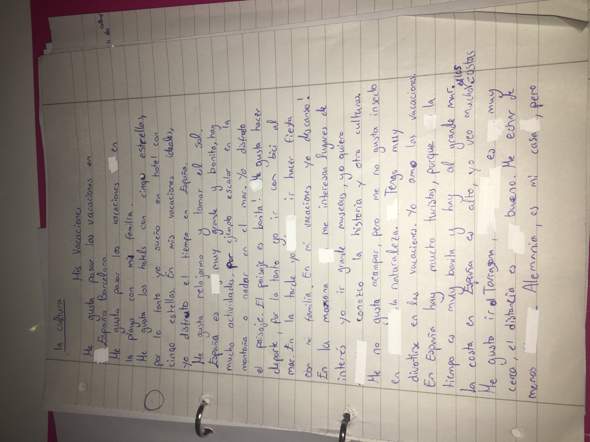 la cultura
Mis Vacaciones
Me gusta pasar las vacaciones en
España Barcelona.
Me gusta pasar las vacaciones en
la playa con mi familia.
Me gusta los hotels con cinqu estrellas,
por lo tanto yo sueño en hotel con
cinqo estrellas. En mis vacaciones ideales,
yo disfruto el tiempo en España.
Me gusta relajarme y tomar el sol.
España es muy grande y bonita, hay
mucho actividades por ejemplo escalar en la
montaña o nadar en el mar. Yo disfruto
el paisaje. El paisaje es bonita! Me gusta hacer
deporte, por lo tanto yo ir con bici al
mar. En la tarde yo ir hacer fiesta
con mi familia. En mi vacaciones yo descanso!
En la manana me interesa lugares de
interés yo ir grande museos, yo quiero
conozco la historia y otro culturas
Me no gusta acampar, pero me no gusta insecto
en la naturaleza. Tengo muy
divertirse en las vacaciones. Yo amo las vacaciones.
En España hay mucho turistas, porque la
tiempo es muy bonita y hay al grande mar.
la costa en España es alto, yo veo mucho costas
Me gusto ir al Tarragon, es muy
cerca, el distancia es bueno. Me echar de
menos Alemannia, es mi casa, pero